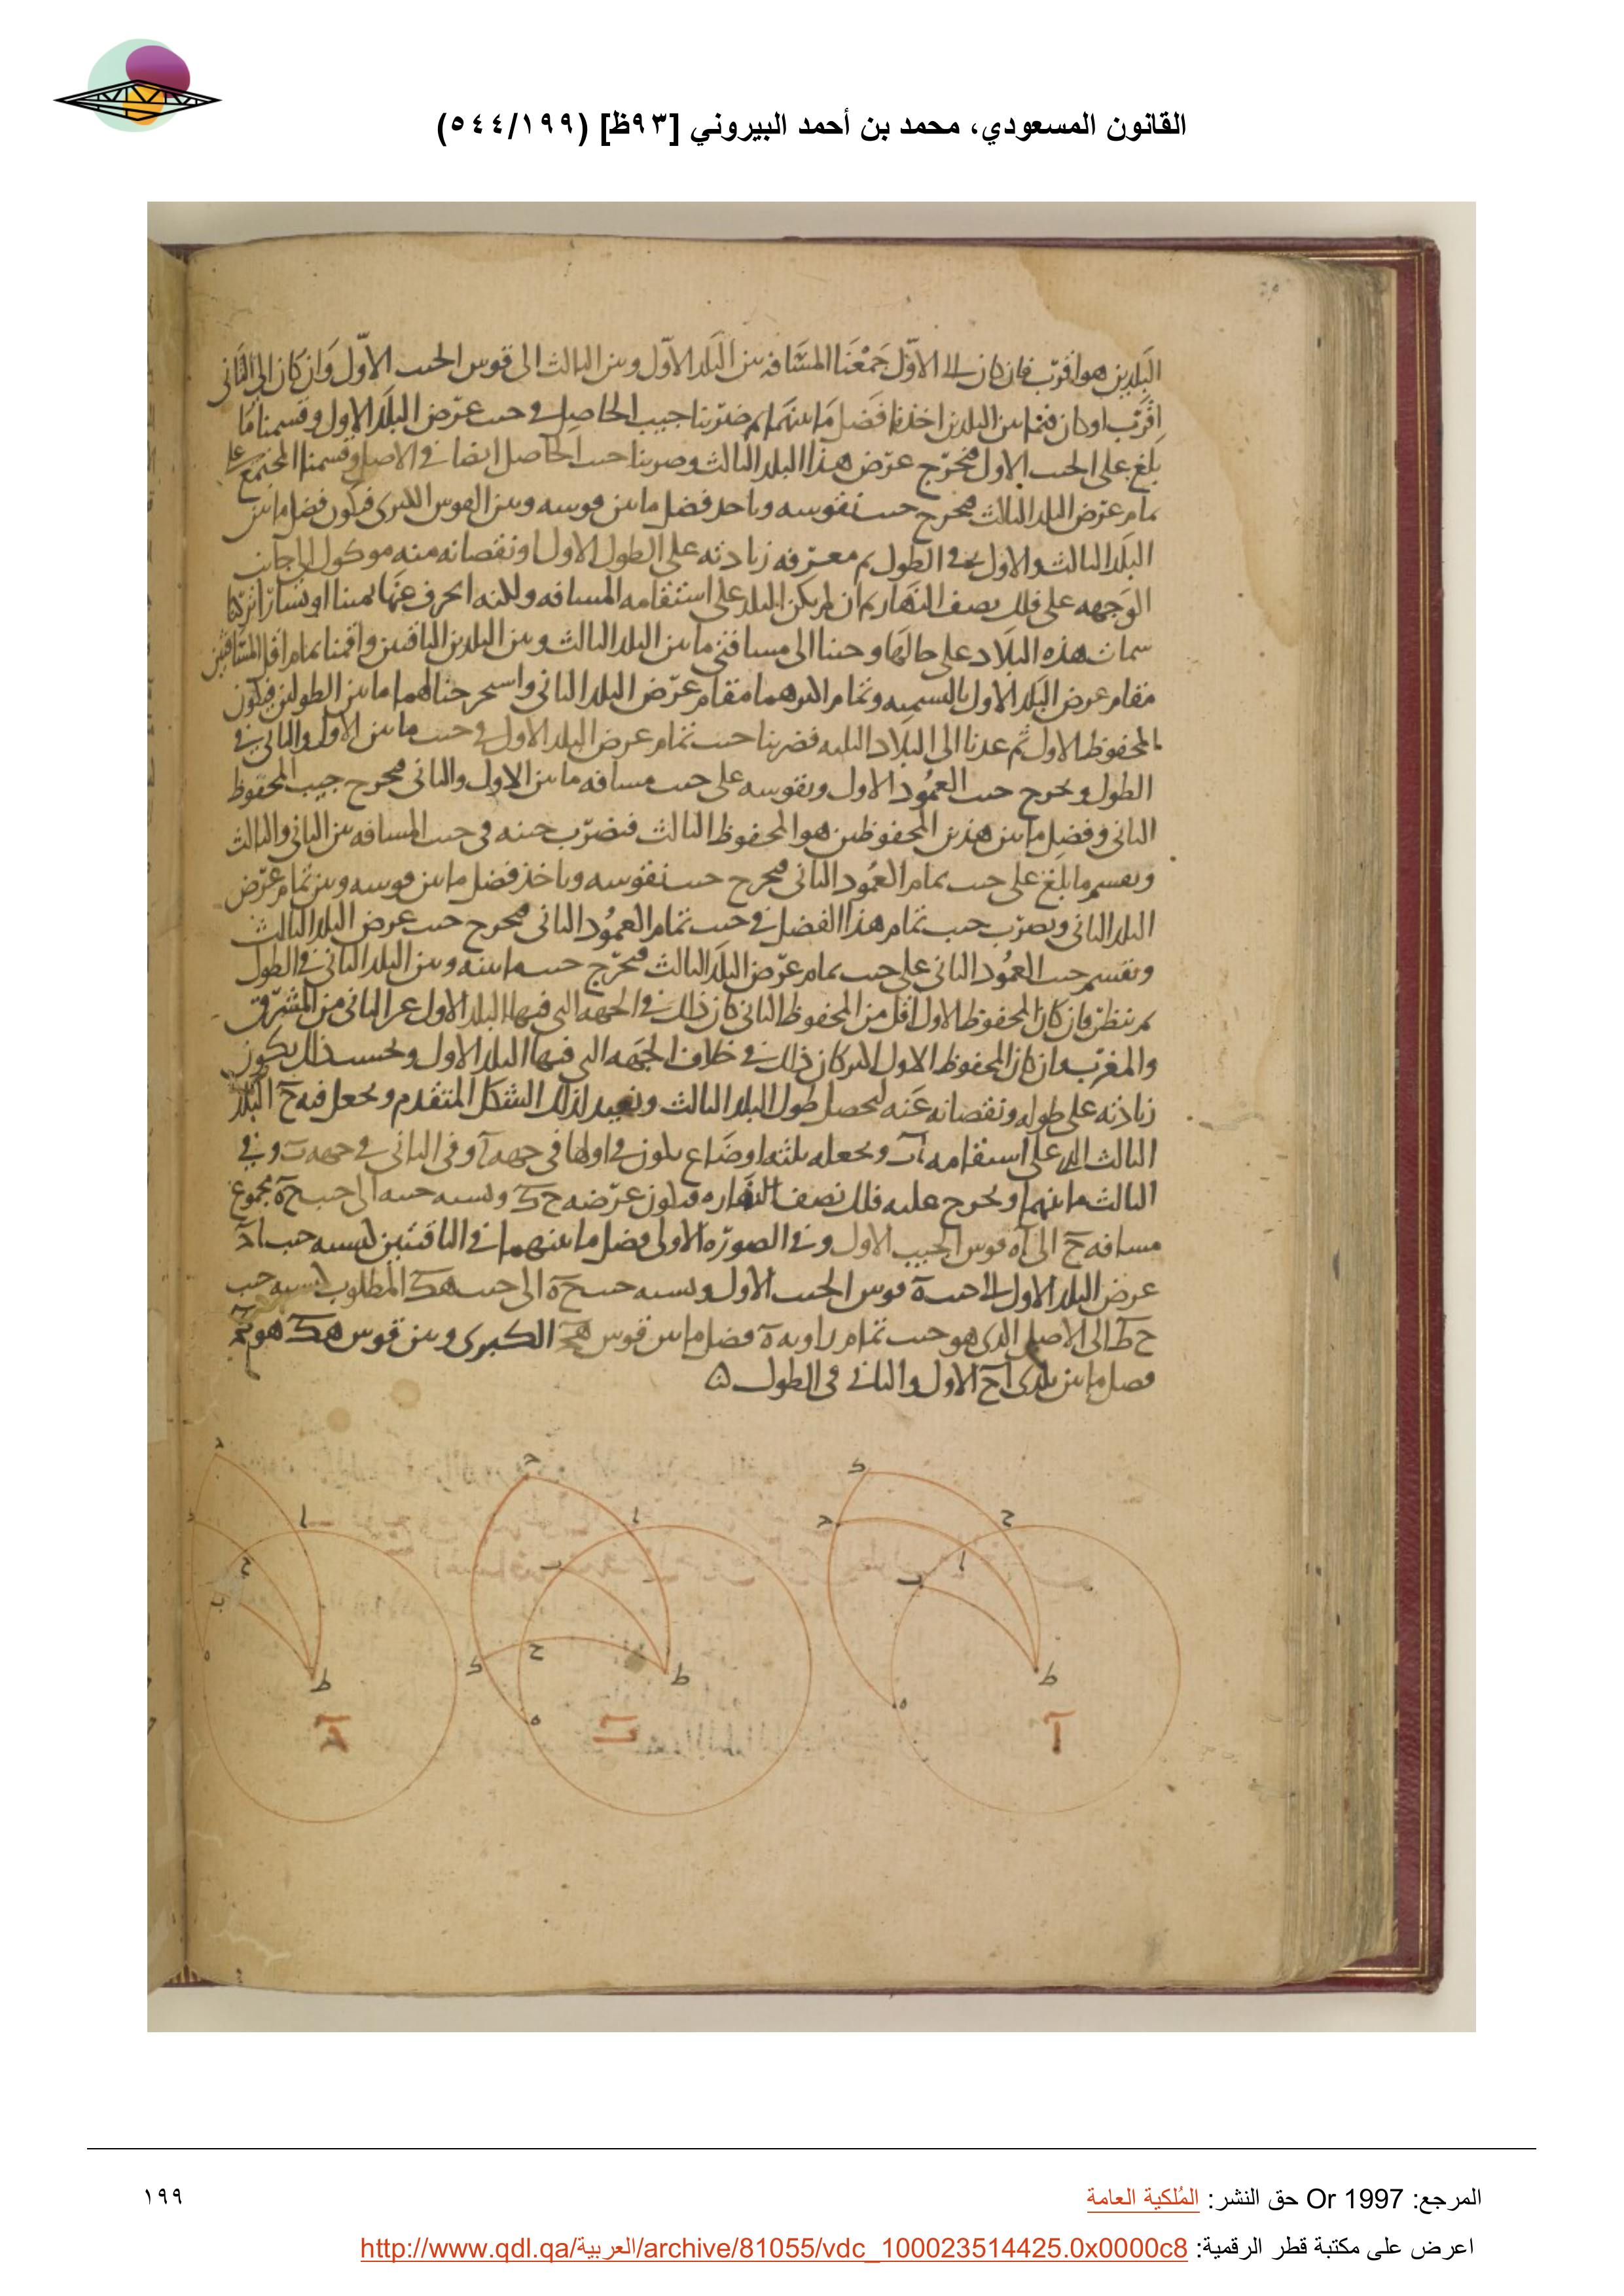 القانون المسعودي، محمد بن أحمد البيروني [٩٣ظ] (٥٤٤/١٩٩)
البلدين هو اقرب فان كان الى الاول جمعنا المسافه بين البلد الاول وبين الثالث الى قوس الجيب الاول وان كان الى الثانى
اقرب او كان فيما بين البلدين اخذنا فضل ما بينهما ثم ضربنا جيب الحاصل فى جيب عرض البلد الاول وقسمنا ما
بلغ على الجيب الاول فيخرج عرض هذا البلد الثالث وضربنا جيب الحاصل ايضا فى الاصل وقسمنا المجتمع على
تمام عرض البلد الثالث فيخرج جيب نقوسه وناخذ فضل ما بين قوسه وبين القوس الكبرى فيكون فضل ما بين
البلد الثالث والاول فى الطول ثم معرفه زيادته على الطول الاول او نقصانه منه موكول الى جانب
الوجهه على فلك نصف النهار ثم ان لم يكن البلد على استقامه المسافه ولكنه انحرف عنها يمينا او يسارا تركنا
سمات هذه البلاد على حالها وجئنا الى مسافتى ما بين البلد الثالث وبين البلدين الباقيين واقمنا تمام اقل المسافتين
مقام عرض البلد الاول بالسميه وتمام اكثرهما مقام عرض البلد الثانى واستخرجنا لهما ما بين الطولين فيكون
المحفوظ الاول ثم عدنا الى البلاد الثلثه فضربنا جيب تمام عرض البلد الاول فى جيب ما بين الاول والثانى فى
الطول ويخرج جيب العمود الاول ونقوسه على جيب مسافه ما بين الاول والثانى فيخرج جيب المحفوظ
الثانى وفضل ما بين هذين المحفوظين هو المحفوظ الثالث فنضرب جيبه فى جيب المسافه بين الثانى والثالث
ونقسم ما بلغ على جيب تمام العمود الثانى فيخرج جيب نقوسه وناخذ فضل ما بين قوسه وبين تمام عرض
البلد الثانى ونضرب جيب تمام هذا الفضل فى جيب تمام العمود الثانى فيخرج جيب عرض البلد الثالث
ونقسم جيب العمود الثانى على جيب تمام عرض البلد الثالث فيخرج جيب ما بينه وبين البلد الثانى فى الطول
ثم ننظر فان كان المحفوظ الاول اقل من المحفوظ الثانى كان ذلك فى الجهه التى فيها البلد الاول عن الثانى من المشرق
والمغرب وان كان المحفوظ الاول اكثر كان ذلك فى خلاف الجهه التى فيها البلد الاول وبحسب ذلك يكون
زيادته على طوله ونقصانه عنه ليحصل طول البلد الثالث ونعيد لذلك الشكل المتقدم ونجعل فيه ح البلد
الثالث الذى على استقامه اب ونجعله بثلثه اوضاع يكون فى اولها فى جهه ا وفى الثانى فى جهه ب وفى
الثالث ما بينهما ونخرج عليه فلك نصف النهاره فيكون عرضه ح ك ونسبه جيبه الى جيب ح ه مجموع
مسافه ح الى اه قوس الجيب الاول وفى الصوره الاولى فضل ما بينهما فى الباقيتين كنسبه جيب اد
عرض البلد الاول الى جيب ه قوس الجيب الاول ونسبه جيب ح ه الى جيب هك المطلوب كنسبه جيب
ح ط الى الاصل الذى هو جيب تمام زاويه ه فضل ما بين قوس هح الكبرى وبين قوس هك هو
فصل ما بين بلدى ا ح الاول والثانى فى الطول
د
ا
ح
ب
ه
ط
ج
د
ا
ب
ح
ك
ط
ه
ب
ك
د
ح
ا
ب
ط
ه
ا
المرجع: Or 1997 حق النشر: المُلكية العامة
١٩٩
اعرض على مكتبة قطر الرقمية: http://www.qdl.qa/العربية/archive/81055/vdc_100023514425.0x0000c8